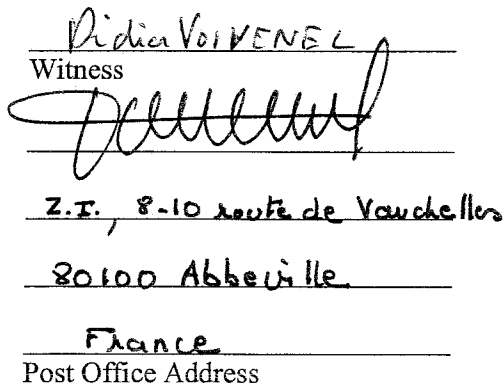 Didier VOIVENEL
Witness
Z.I., 8-10 route de Vauchelles
80100 Abbeville
France
Post Office Address